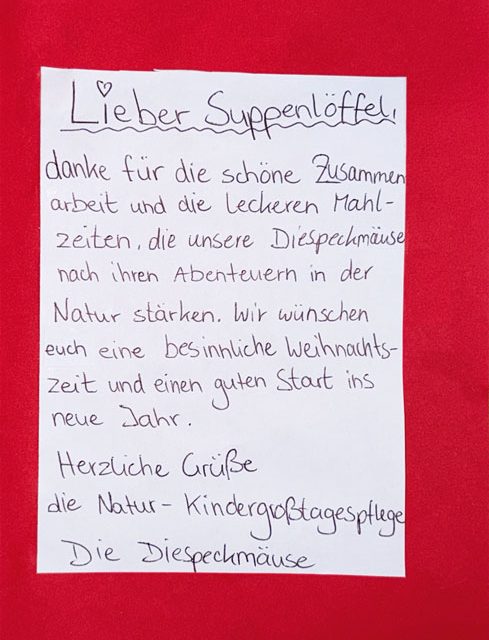 Lieber Suppenlöffel,
danke für die schöne Zusammen
arbeit und die leckeren Mahl-
zeiten, die unsere Diespeckmäuse
nach ihren Abenteuern in der
Natur stärken. Wir wünschen
euch eine besinnliche Weihnachts-
zeit und einen guten Start ins
neue Jahr.
Herzliche Grüße
die Natur-Kindergroßtagespflege
Die Diespeckmäuse